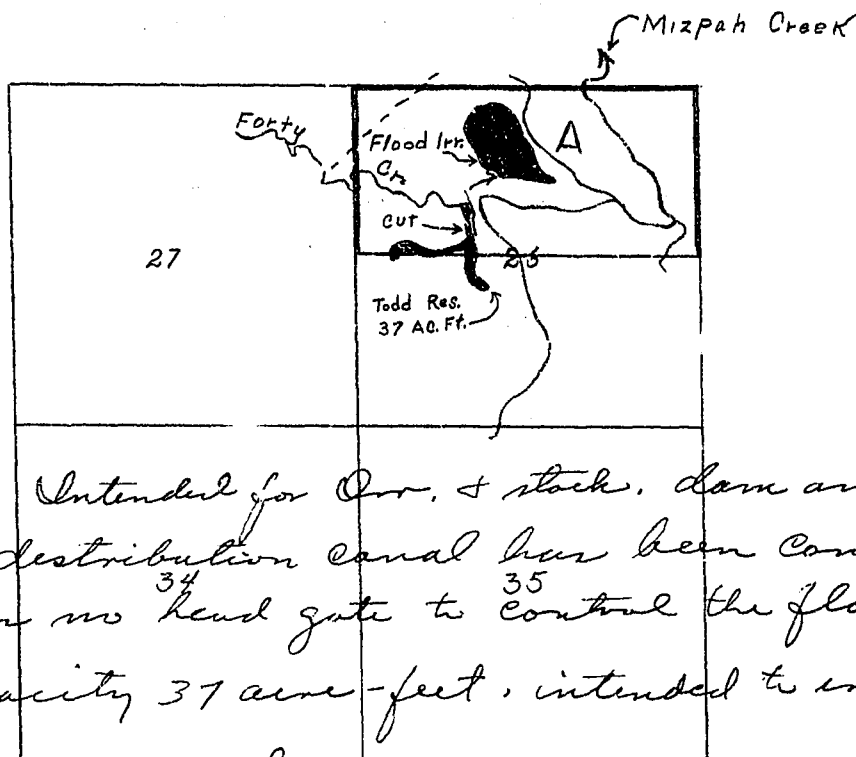 Mizpah Creek
Forty
Flood Irr.
A
Cr.
cut
27
26
Todd Res.
37 Ac. Ft.
Intended for Irr. & stock. dam an
destribution canal has been con
34
35
no head gate to control the flo
acity 37 acre-feet, intended to